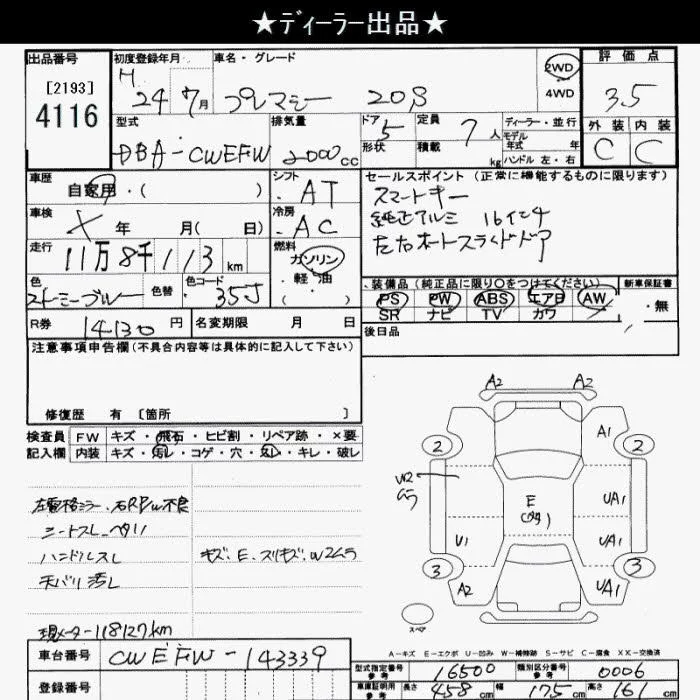 ★ディーラー出品★
出品番号
[2193]
4116
初度登録年月
H 24年 7月
車名・グレード
プレマシー 20S
2WD
4WD
評価点
3.5
外装 内装
C C
型式
DBA-CWEFW
排気量
2000cc
ドア 5
形状
定員 7人
積載 kg
ディーラー・並行
モデル年式 年
ハンドル 左・右
車歴
自家用・( )
シフト
AT
車検
年 月( 日)
冷房
AC
走行
11万8千113km
燃料
ガソリン
・軽油
( )
色
ストーミーブルー
色替
色コード
35J
R券
14130円
名変期限 月 日
セールスポイント (正常に機能するものに限ります)
スマートキー
純正アルミ 16インチ
左右オートスライドドア
装備品(純正品に限り○をつけてください)
PS PW ABS エアB AW
SR ナビ TV カワ
新車保証書
・無
後日品
注意事項申告欄(不具合内容等は具体的に記入して下さい)
修復歴 有 [箇所 ]
検査員記入欄
FW キズ・飛石・ヒビ割・リペア跡・×要
内装 キズ・汚レ・コゲ・穴・スレ・キレ・破レ
左電格ミラー、右RPW不良
シートスレ、ヘタリ
ハンドルスレ
天バリ汚レ
キズ、E、スリキズ、W2ムラ
現メーター118127km
A2 A2
2 A1 2
W2
ムラ
E
UA1
U1 UA1
3 3
A2 UA1
スペア
A-キズ E-エクボ U-凹み W-補修跡 S-サビ C-腐食 XX-交換済
車台番号
CWEFW-143339
登録番号
型式指定番号 参考
16500
類別区分番号 参考
0006
車庫証明用 参考
長さ 458cm 幅 175cm 高さ 161cm